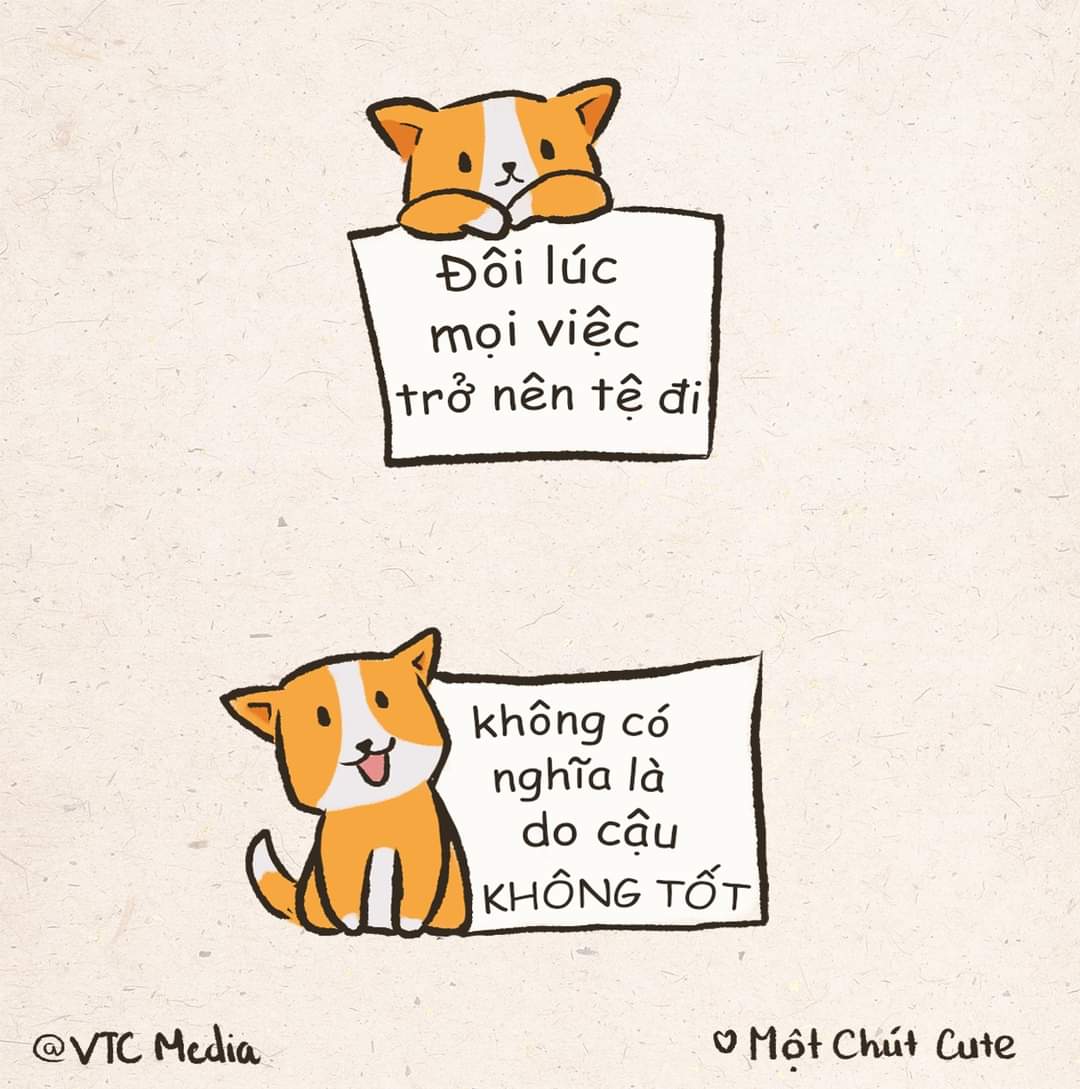 Đôi lúc
mọi việc
trở nên tệ đi
không có
nghĩa là
do cậu
KHÔNG TỐT
@VTC Media
♡ Một Chút Cute